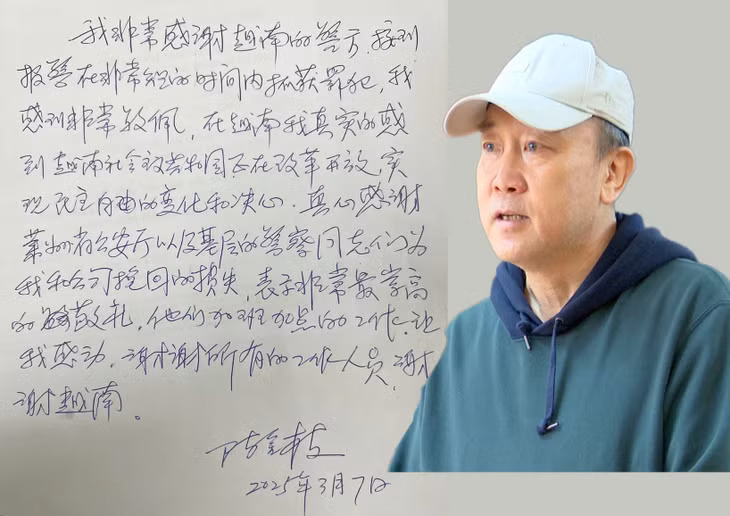 我非常感谢越南的警方,接到
报警在非常短的时间内抓获罪犯,我
感到非常敬佩,在越南我真实的感
到越南社会主义共和国正在改革开放,实
现民主自由的变化和决心。真心感谢
省公安厅以及基层的警察同志们为
我和公司挽回的损失,表示非常最崇高
的敬礼,他们加班加点的工作,让
我感动,谢谢所有的工作人员,谢
谢越南。
2025年3月7日